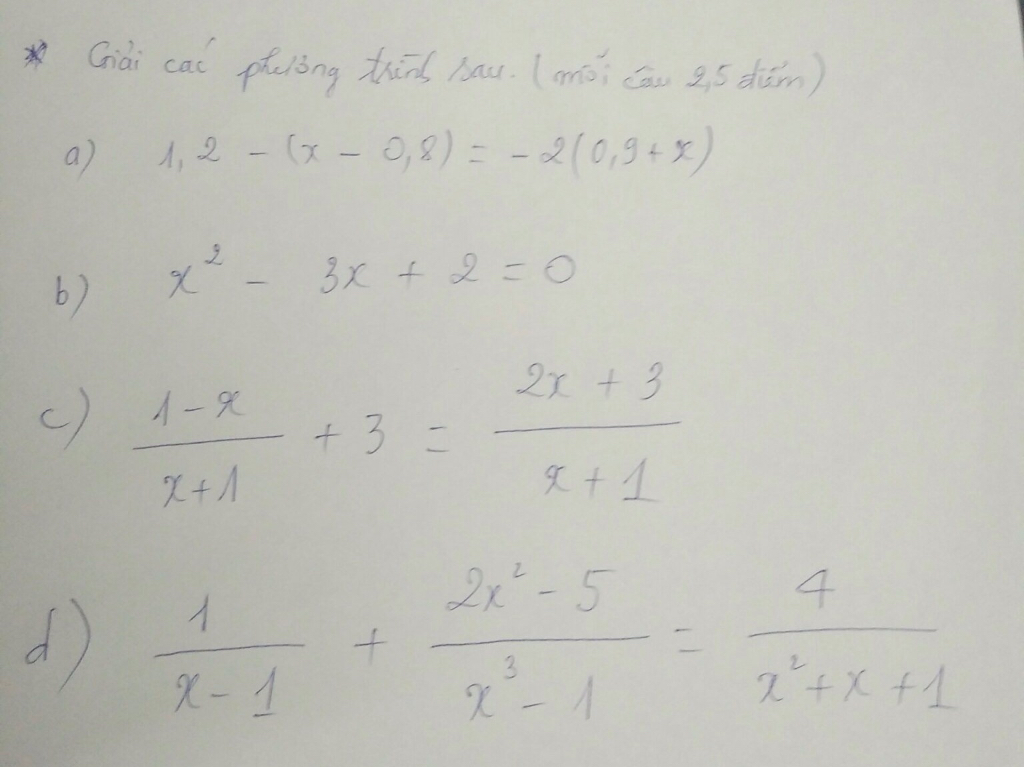 * Giải các phương trình sau. (mỗi câu 2,5 điểm)
a) 1,2 - (x - 0,8) = -2(0,9 + x)
b) x² - 3x + 2 = 0
c) (1-x)/(x+1) + 3 = (2x + 3)/(x + 1)
d) 1/(x - 1) + (2x² - 5)/(x³ - 1) = 4/(x² + x + 1)